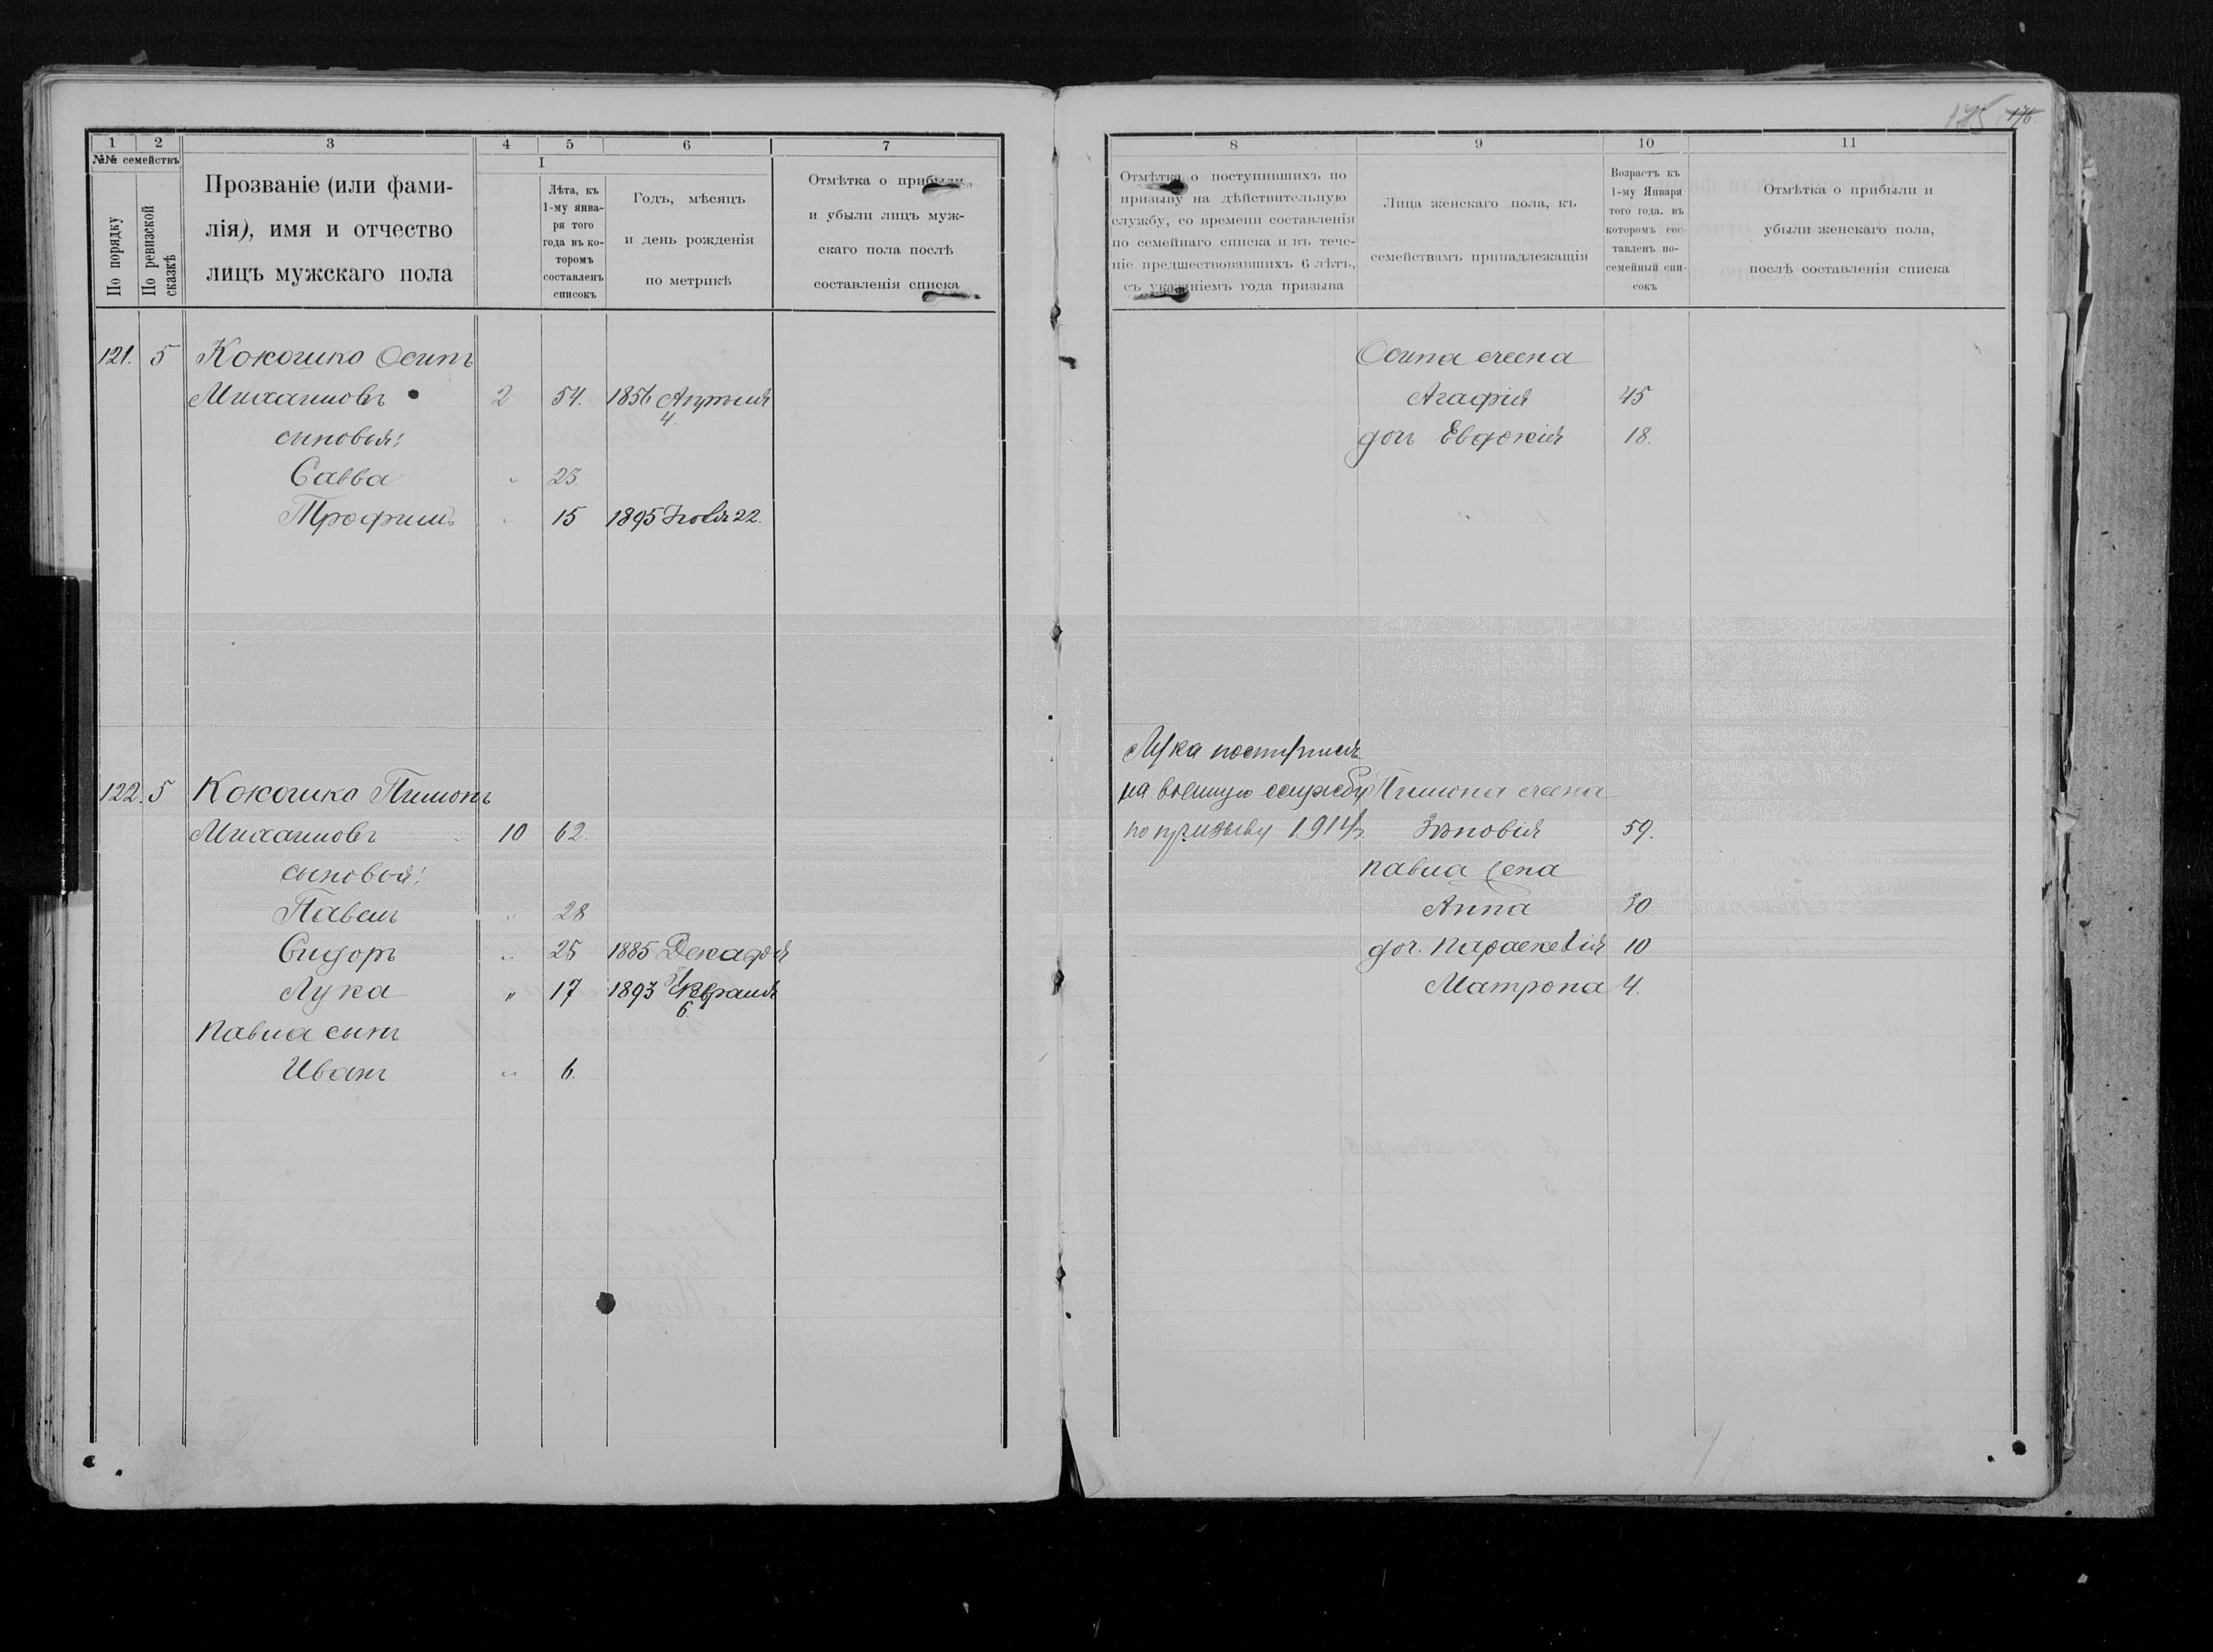 1 2 3 4 5 6 7
№№ семействъ
По порядку
По ревизской сказкѣ
Прозваніе (или фами-
лія), имя и отчество
лицъ мужскаго пола
I
Лѣта, къ
1-му янва-
ря того
года въ ко-
торомъ
составленъ
списокъ
Годъ, мѣсяцъ
и день рожденія
по метрикѣ
Отмѣтка о прибыли
и убыли лицъ муж-
скаго пола послѣ
составленія списка
121. 5 Кокошко Осипъ
Михаиловъ 2 54. 1856 Апрѣля
4.
сыновья:
Савва " 23.
Трофимъ " 15 1895 Іюля 22.
122. 5 Кокошка Пимонъ
Михаиловъ 10 62.
сыновья:
Павелъ " 28
Сидоръ " 25 1885 Декабря
Лука " 17 1893 Февраля
6.
Павла сынъ
Иванъ " 6.
175 176
8 9 10 11
Отмѣтка о поступившихъ по
призыву на дѣйствительную
службу, со времени составленія
по семейнаго списка и въ тече-
ніе предшествовавшихъ 6 лѣтъ,
съ указаніемъ года призыва
Лица женскаго пола, къ
семействамъ принадлежащія
Возрастъ къ
1-му Января
того года. въ
которомъ сос-
тавленъ по-
семейный спи-
сокъ
Отмѣтка о прибыли и
убыли женскаго пола,
послѣ составленія списка
Осипа жена
Агафія 45
дочь Евдокія 18.
Лука поступилъ
на военную службу Пимона жена
по призыву 1914 г. Зѣновія 59.
Павла жена
Анна 30
доч. Параскевія 10
Матрона 4.